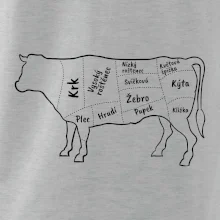 Krk
Vysoký
roštěnec
Nízký
roštěnec
Svíčková
Květová
špička
Žebro
Kýta
Plec
Hrudí
Pupek
Kližka